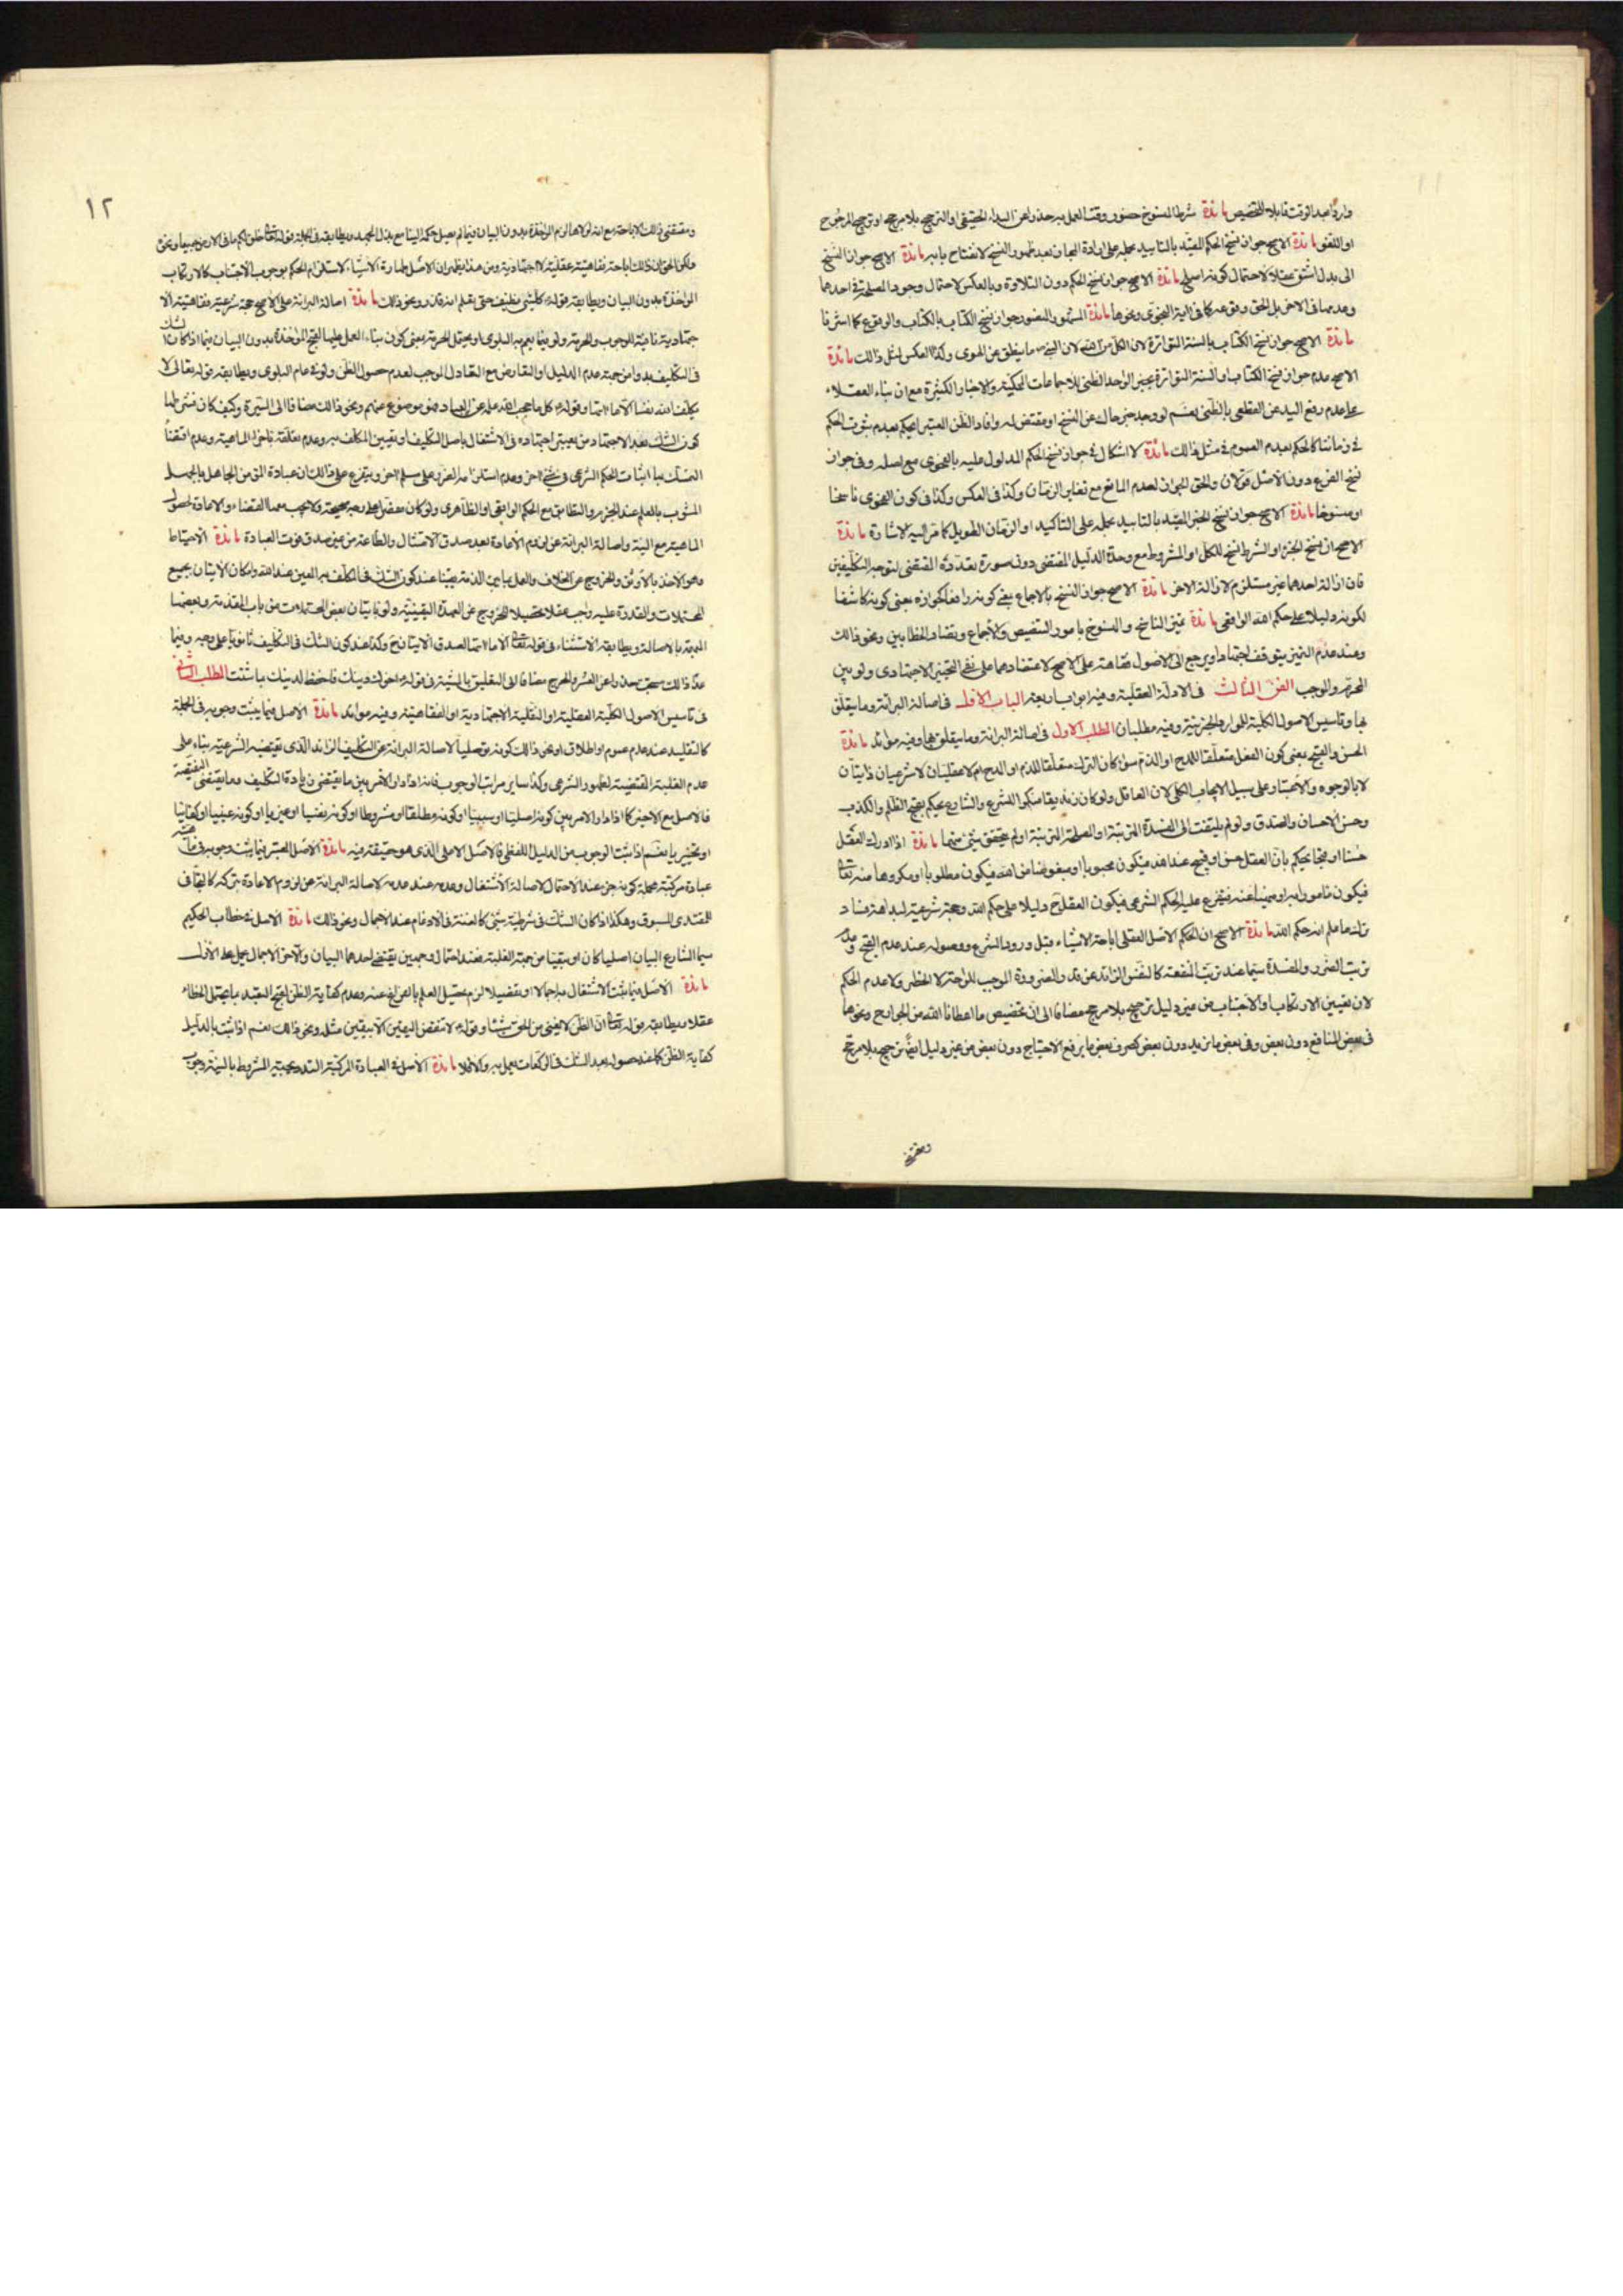 وارداً بعد الوقت قابلا للتخصيص مائدة شرط المنسوخ حضور وقت العمل به حذرا عن البداء الحقيقى او الترجيح بلا مرجح او ترجيح المرجوح
او اللغو مائدة الاصح جواز نسخ الحكم المقيد بالتابيد بحمله على ارادة المجاز بعد ظهور النسخ لانفتاح بابه مائدة الاصح جواز النسخ
الى بدل اشق عقلا لاحتمال كونه اصلح مائدة الاصح جواز نسخ الحكم دون التلاوة وبالعكس لاحتمال وجود المصلحة فى احدهما
وعدمها فى الاخر بل الحق وقوعه كما فى اية النجوى ونحوها مائدة المشهور المنصور جواز نسخ الكتاب بالكتاب والوقوع كما اشرنا
مائدة الاصح جواز نسخ الكتاب بالسنة المتواترة لان الكل من الله لان النبى ص ما ينطق عن الهوى وكذا العكس لمثل ذالك مائدة
الاصح عدم جواز نسخ الكتاب والسنة المتواترة بخبر الواحد الظنى للاجماعات المحكية والاخبار الكثيرة مع ان بناء العقلاء
على عدم رفع اليد عن القطعى بالظنى نعم لو وجد خبر حاك عن النسخ او مقتض له وافاد الظن المعتبر الحكم بعدم ثبوت الحكم
فى زماننا كالحكم بعدم العموم فى مثل ذالك مائدة لا اشكال فى جواز نسخ الحكم المدلول عليه بالفحوى مع اصله وفى جواز
نسخ الفرع دون الاصل قولان والحق الجواز لعدم المانع مع تغاير الزمان وكذا فى العكس وكذا فى كون الفحوى ناسخا
او منسوخا مائدة الاصح جواز نسخ الخبر المقيد بالتابيد بحمله على التاكيد او الزمان الطويل كما مر اليه الاشارة مائدة
الاصح ان نسخ الجزء او الشرط نسخ للكل او المشروط مع وحدة الدليل المقتضى دون صورة تعدده المقتضى لتوجه التكليفين
فان ازالة احدهما غير مستلزم لازالة الاخر مائدة الاصح جواز النسخ بالاجماع بمعنى كونه رافعا لجوازه بمعنى كونه كاشفا
لكونه دليلا على حكم الله الواقعى مائدة تميز الناسخ والمنسوخ بامور التنصيص والاجماع وتضاد الخطابين ونحو ذالك
وعند عدم التميز يتوقف اجتهادا ويرجع الى الاصول فقاهة على الاصح لاعتضادهما على نفى التخيير الاجتهادى ولو بين
المحرم والوجب الفن الثالث فى الادلة العقلية وفيه ابواب اربعة الباب الاول فى اصالة البرائة وما يتعلق
بها وتاسيس الاصول الكلية للموارد الجزئية وفيه مطلبان المطلب الاول فى اصالة البرائة وما يتعلق بها وفيه موائد مائدة
الحسن والقبح بمعنى كون الفعل متعلقا للمدح او الذم سواء كان الترك متعلقا للذم او المدح ام لا عقليان لا شرعيان ذاتيان
لا بالوجوه والاعتبار على سبيل الايجاب الكلى لان العاقل ولو كان زنديقا منكرا للشرع والشارع يحكم بقبح الظلم والكذب
وحسن الاحسان والصدق ولو لم يلتفت الى المفسدة المترتبة او المصلحة المترتبة او لم يتحقق شئ منهما مائدة اذا ادرك العقل
حسنا او قبحا يحكم بان العقل حسن او قبيح عند الله فيكون محبوبا او مبغوضا من الله فيكون مطلوبا او مكروها منه تعالى
فيكون مامورا به او منهيا عنه فيتفرع عليه الحكم الشرعى فيكون العقل ح دليلا على حكم الله وحجة شرعية لبداهة فساد
ترك ما علم انه حكم الله مائدة الاصح ان الحكم الاصل العقلى اباحة الاشياء قبل ورود الشرع ووصوله عند عدم القبح وعدم
ترتب الضرر والمفسدة سيما عند ترتب المنفعة كالتنفس الزائد عن قدر الضرورة الموجب للراحة لا الحظر ولا عدم الحكم
لان تعيين الارتكاب والاجتناب من غير دليل ترجيح بلا مرجح مضافا الى ان تخصيص ما اعطانا الله من الجوارح ونحوها
فى بعض المنافع دون بعض وفى بعض ما يزيد دون بعض كصرف بعض ما يرفع الاحتياج دون بعض من غير دليل ايضا ترجيح بلا مرجح
١٢
ومقتضى ذالك الاباحة مع انه لولاها لزم المؤاخذة بدون البيان فيما لم يصل حكمه الينا مع بذل الجهد ويطابقه فى الجملة قوله تعالى خلق لكم ما فى الارض جميعا ونحوه
ولكن الحق ان ذالك اباحة فقاهتية عقلية لا اجتهادية ومن هذا يظهر ان الاصل طهارة الاشياء لاستلزام الحكم بوجوب الاجتناب كالارتكاب
المؤاخذة بدون البيان ويطابقه قوله ع كل شئ نظيف حتى يعلم انه قذر ونحو ذالك مائدة اصالة البرائة على الاصح حجة شرعية فقاهتية لا
اجتهادية نافية للوجوب والحرمة ولو فيما يعم به البلوى او يحتمل الحرمة بمعنى كون بناء العمل عليها لقبح المؤاخذة بدون البيان فيما اذا كان الشك
فى التكليف بدوا من جهة عدم الدليل او التعارض مع التعادل الموجب لعدم حصول الظن ولو فى عام البلوى ويطابقه قوله تعالى لا
يكلف الله نفسا الا ما اتيها وقوله ع كل ما حجب الله علمه عن العباد فهو موضوع عنهم ونحو ذالك مضافا الى السيرة وكيف كان فشرطها
كون الشك بعد الاجتهاد من يعتبر اجتهاده فى الاشتغال باصل التكليف او تعيين المكلف به وعدم تعلقه باجزاء الماهية وعدم اقتضاء
التمسك بها اثبات الحكم الشرعى فى شئ اخر وعدم استلزامه الضرر على مسلم اخر ويتفرع على ذالك ان عبادة التى من الجاهل بالجهل
المشوب بالعلم عند الجزم والتطابق مع الحكم الواقعى او الظاهرى ولو كان مقصرا على وجه صحيحة ولا يجب معها القضاء والاعادة لحصول
الماهية مع النية واصالة البرائة عن لزوم الاعادة بعد صدق الامتثال والطاعة من غير صدق فوت العبادة مائدة الاحتياط
وهو الاخذ بالاوثق والخروج عن الخلاف والعمل بما يبرء الذمة يقينا عند كون الشك فى المكلف به المعين عند الله وامكان الاتيان بجميع
المحتملات والقدرة عليه واجب عقلا تحصيلا للخروج عن العهدة اليقينية ولو باتيان بعض المحتملات من باب المقدمة وبعضها
المبهم بالاصالة ويطابقه الاستثناء فى قوله تعالى الا ما اتيها لصدق الاتيان ح وكذا عند كون الشك فى التكليف ثانويا على وجه وفيما
عدا ذالك مستحب حذرا عن العسر والحرج مضافا الى التعليق بالمشية فى قوله ع اخوك دينك فاحفظ لدينك بما شئت المطلب الثانى
فى تاسيس الاصول الكلية العقلية او النقلية الاجتهادية او الفقاهتية وفيه موائد مائدة الاصل فيما يثبت وجوبه فى الجملة
كالتقليد عند عدم عموم او اطلاق او نحو ذالك كونه توصليا لاصالة البرائة عن التكليف الزائد الذى يقتضيه الشرعية بناء على
عدم الغلبة المقتضية لظهور الشرعى وكذا ساير مراتب الوجوب فانه اذا دار الامر بين ما يقتضى زيادة التكليف وما يقتضى النقيصة
فالاصل مع الاخير كما اذا دار الامر بين كونه اصليا او سببيا او كونه مطلقا او مشروطا او كونه نفسيا او غيريا او كونه عينيا او كفائيا
او تخييريا نعم اذا ثبت الوجوب من الدليل اللفظى فالاصل الاصلى الذى هو حقيقة فيه مائدة الاصل المعتبر فيما يثبت وجوبه فى
عبادة مركبة مجملة كونه جزء عند الاحتمال لاصالة الاشتغال وعدمه عند عدمه لاصالة البرائة عن لزوم الاعادة بتركه كالجهاف
للمقتدى المسبوق وهكذا اذا كان الشك فى شرطية شئ كالغنة فى الادغام عند الاجمال ونحو ذالك مائدة الاصل فى خطاب الحكيم
سيما الشارع البيان اصليا كان او تبعيا من جهة الغلبة فعند احتمال وجهين يقتضى احدهما البيان والاخر الاجمال يحمل على الاول
مائدة الاصل فيما يثبت الاشتغال به اجمالا او تفصيلا لزوم تحصيل العلم بالفراغ عنه وعدم كفاية الظن لقبح التعبد بما يحتمل الخطاء
عقلا ويطابقه قوله تعالى ان الظن لا يغنى من الحق شيئا وقوله ع لا تنقض اليقين الا بيقين مثله ونحو ذالك نعم اذا ثبت بالدليل
كفاية الظن كما عند حصوله بعد الشك فى الركعات يعمل به والا فلا مائدة الاصل فى العبادة المركبة التدريجية المشروط بالنية وجوب